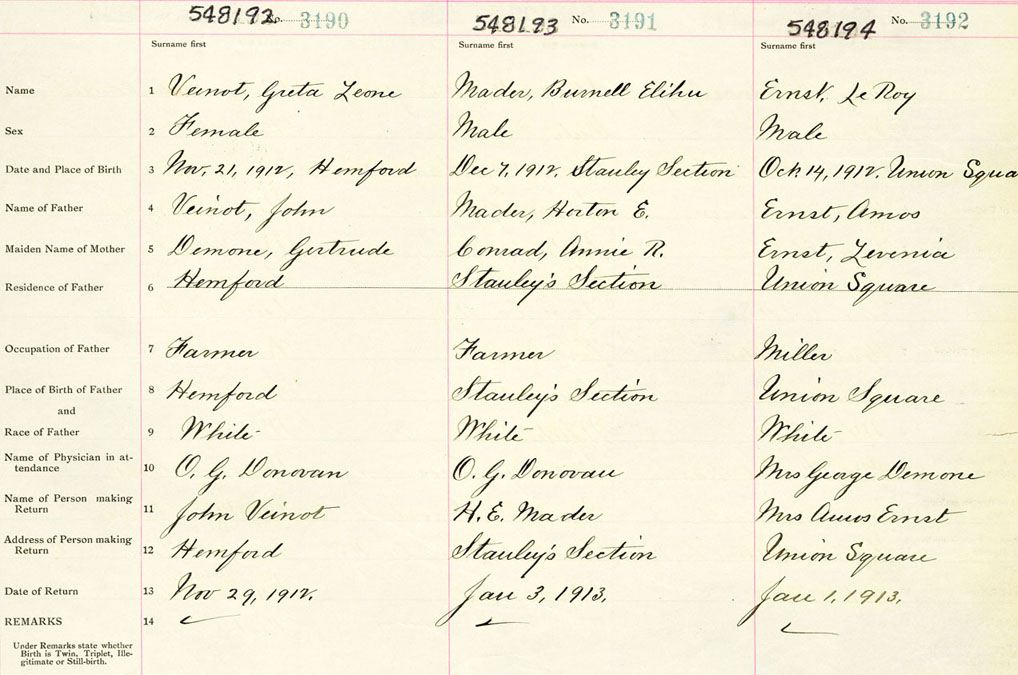 548192 No. 3190 548193 No. 3191 548194 No. 3192
Surname first Surname first Surname first
Name 1 Veinot, Greta Leone Mader, Burnell Elihu Ernst, LeRoy
Sex 2 Female Male Male
Date and Place of Birth 3 Nov. 21, 1912, Hemford Dec 7, 1912. Stanley Section Oct 14, 1912. Union Squa
Name of Father 4 Veinot, John Mader, Horton E. Ernst, Amos
Maiden Name of Mother 5 Demone, Gertrude Conrad, Annie R. Ernst, Levenia
Residence of Father 6 Hemford Stanley's Section Union Square
Occupation of Father 7 Farmer Farmer Miller
Place of Birth of Father 8 Hemford Stanley's Section Union Square
and
Race of Father 9 White White White
Name of Physician in at-
tendance 10 O. G. Donovan O. G. Donovan Mrs George Demone
Name of Person making
Return 11 John Veinot H. E. Mader Mrs Amos Ernst
Address of Person making
Return 12 Hemford Stanley's Section Union Square
Date of Return 13 Nov 29, 1912. Jan 3, 1913. Jan 1, 1913.
REMARKS 14
Under Remarks state whether
Birth is Twin, Triplet, Ille-
gitimate or Still-birth.